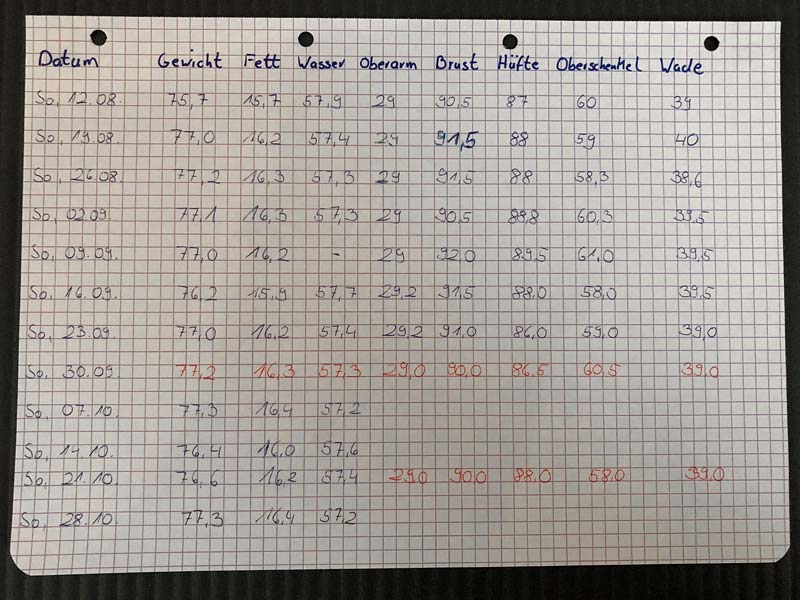 Datum Gewicht Fett Wasser Oberarm Brust Hüfte Oberschenkel Wade
So, 12.08. 75,7 15,7 57,9 29 90,5 87 60 39
So, 19.08. 77,0 16,2 57,4 29 91,5 88 59 40
So, 26.08. 77,2 16,3 57,3 29 91,5 88 58,3 38,6
So, 02.09. 77,1 16,3 57,3 29 90,5 88,8 60,3 39,5
So, 09.09. 77,0 16,2 - 29 92,0 89,5 61,0 39,5
So, 16.09. 76,2 15,9 57,7 29,2 91,5 88,0 58,0 39,5
So, 23.09. 77,0 16,2 57,4 29,2 91,0 86,0 59,0 39,0
So, 30.09. 77,2 16,3 57,3 29,0 90,0 86,5 60,5 39,0
So, 07.10. 77,3 16,4 57,2
So, 14.10. 76,4 16,0 57,6
So, 21.10. 76,6 16,2 57,4 29,0 90,0 88,0 58,0 39,0
So, 28.10. 77,3 16,4 57,2